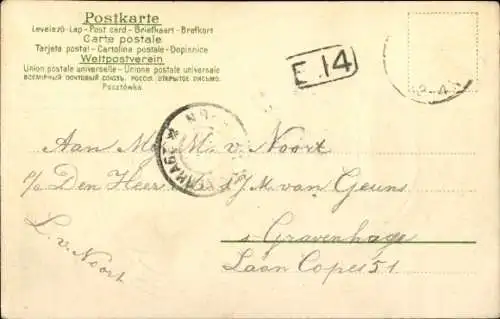 Postkarte
Levelező-Lap - Post card - Briefkaart - Brefkort
Carte postale
Tarjeta postal - Cartolina postale - Dopisnice
Weltpostverein
Union postale universelle - Unione postale universale
ВСЕМІРНЫЙ ПОЧТОВЫЙ СОЮЗЪ. РОССІЯ. ОТКРЫТОЕ ПИСЬМО.
Pocztówka
E.14
Aan Mej. M. v. Noort
p/a Den Heer J. M. van Geuns
s Gravenhage
Laan Copes 51
L. v. Noort